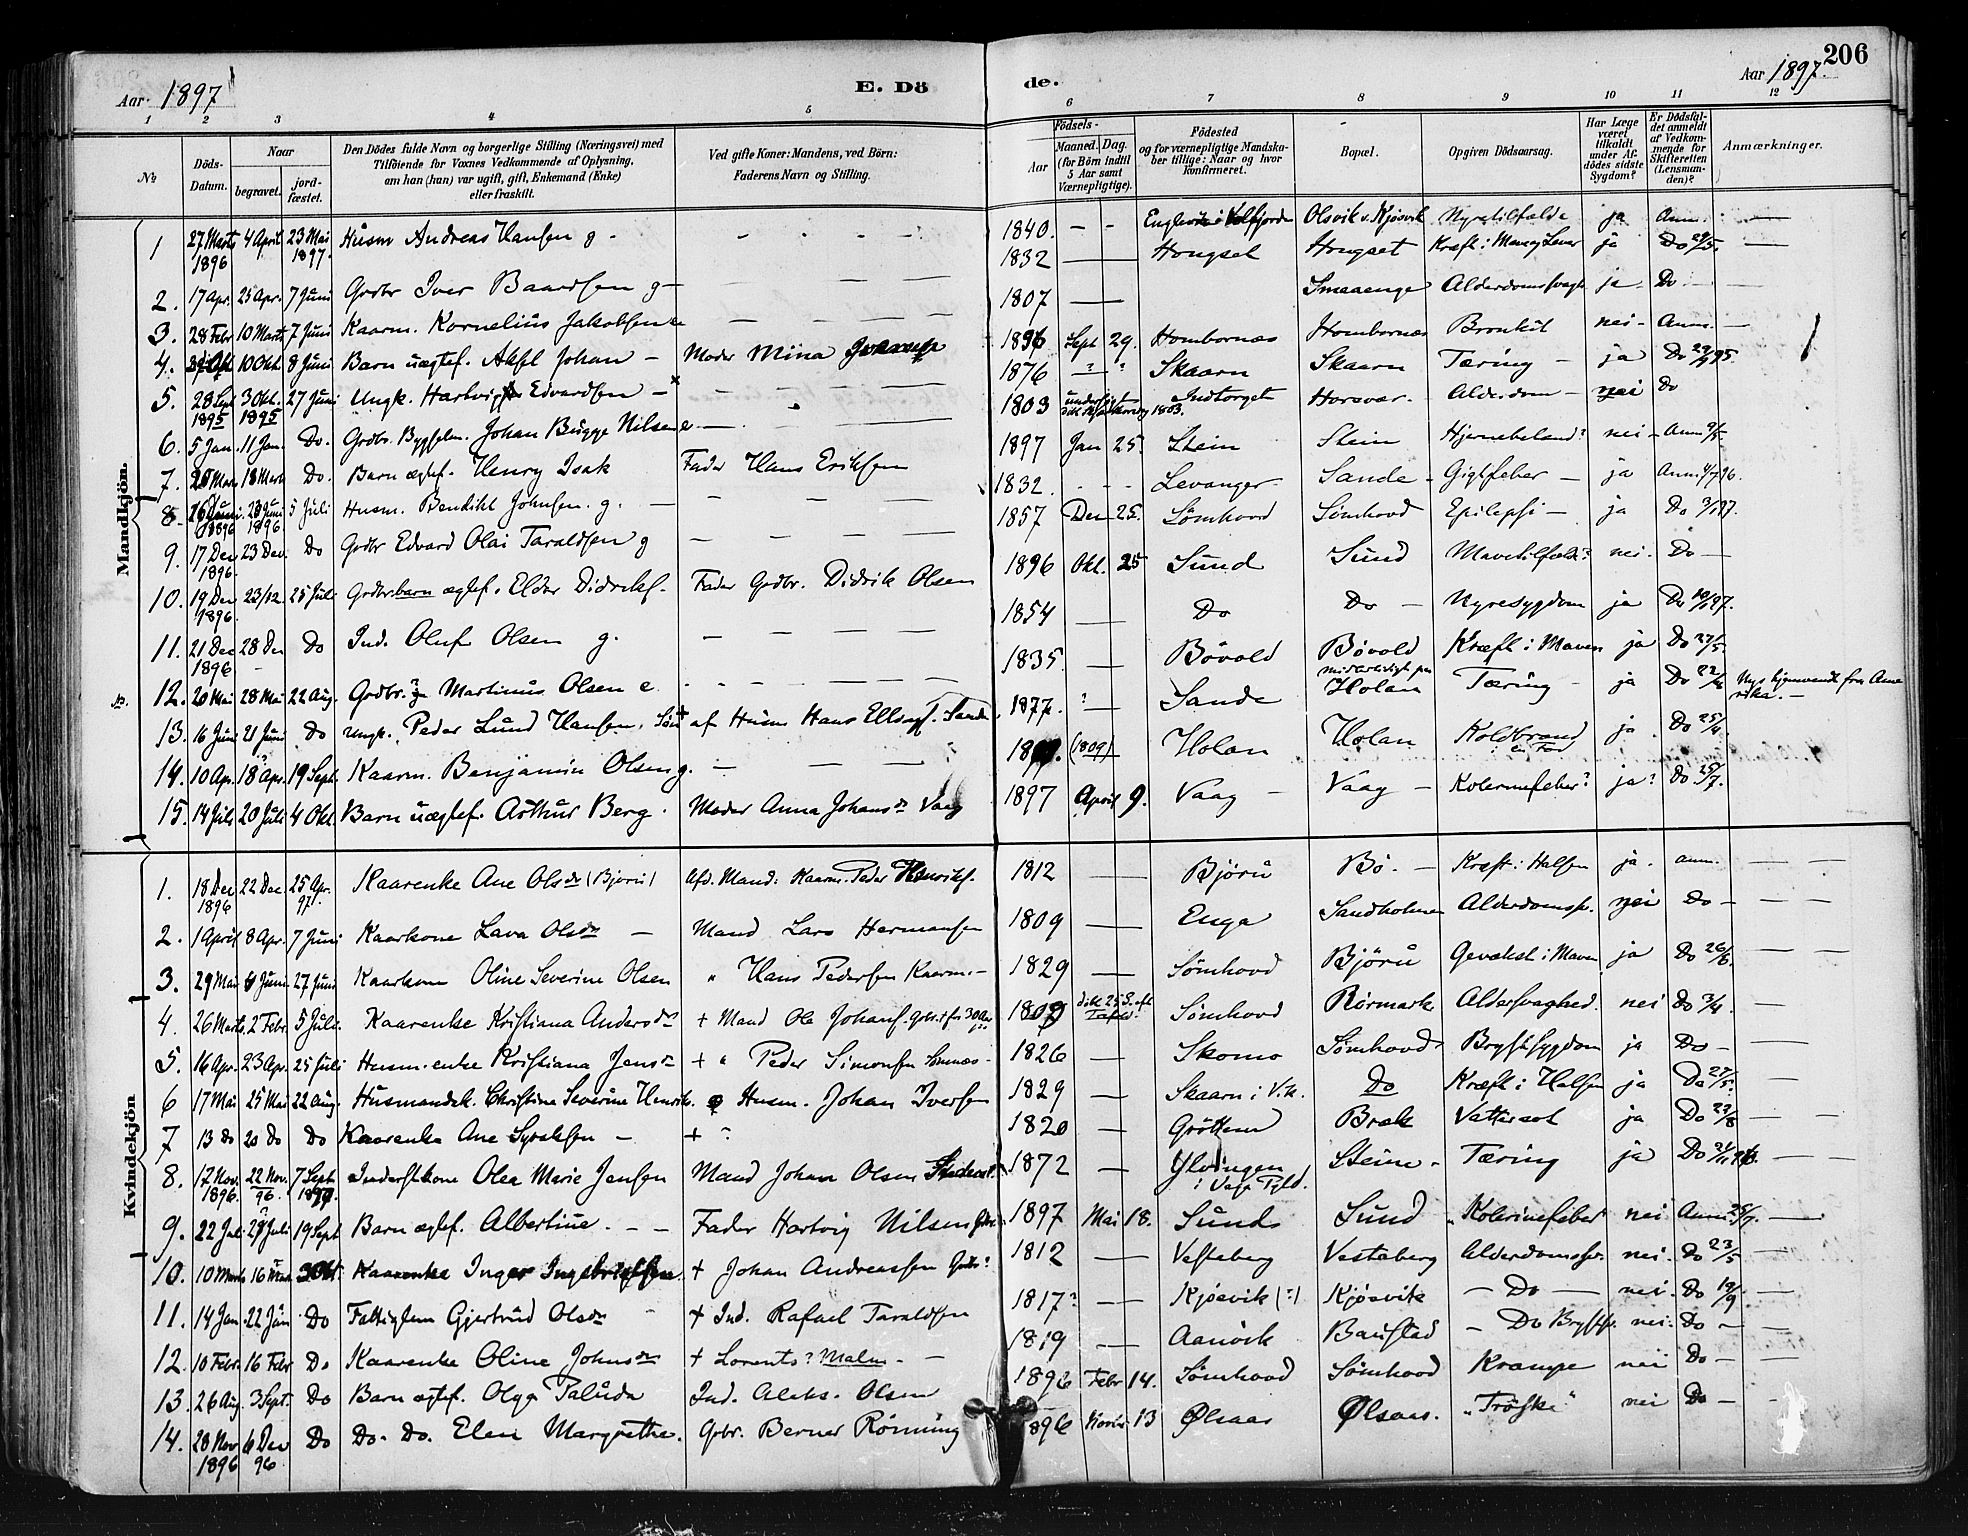 Aar 1897
E. Döde.
Aar 1897.
206
1 2 3 4 5 6 7 8 9 10 11 12
№
Döds-Datum.
Naar
begravet.
jord-fæstet.
Den Dödes fulde Navn og borgerlige Stilling (Næringsvei) med
Tilföiende for Voxnes Vedkommende af Oplysning,
om han (hun) var ugift, gift, Enkemand (Enke)
eller fraskilt.
Ved gifte Koner: Mandens, ved Börn:
Faderens Navn og Stilling.
Födsels-
Aar
Maaned. Dag.
(for Börn indtil
5 Aar samt
Værnepligtige).
Födested
og for værnepligtige Mandska-
ber tillige: Naar og hvor
konfirmeret.
Bopæl.
Opgiven Dödsaarsag.
Har Læge
været
tilkaldt
under Af-
dödes sidste
Sygdom?
Er Dödsfal-
det anmeldt
af Vedkom-
mende for
Skifteretten
(Lensman-
den)?
Anmærkninger.
Mandkjön.
1 27 Marts 1896 4 April 23 Mai 1897. Husm Andreas Hansen g - 1840. - - Olsvik v. Kjøsvik Nyretilfælde ja Anm. -
1832 - Hongset Hongset Kræft i Mave og Lever ja Do 29/5. -
2. 17 Apr. 25 Apr. 7 Juni Grdbr Iver Baardsen g - 1807 - Smaaenge Alderdomssvagh ja Do -
3. 28 Febr 10 Marts 7 Juni Kaarm. Kornelius Jakobsen e 1896 Sept 29. Hombornæs Hombornæs Bronkit nei - Anm. -
4. 10 Okt. 8 Juni Barn uægtef. Aksel Johan - Moder Mina 1876 - ? Skaarn Skaarn Tæring - ja Do 29/9 95.
5. 28 Sept 1895 3 Okt. 1895 27 Juni Ungk. Hartvig Edvardsen - x 1803 Indtorget Horsvær. Alderdom - nei Do
6. 5 Jan. 11 Jan. Do. Grdbr. Bygselm. Johan Bugge Nilsen e - 1897 Jan 25. Stein Stein Hjernebetænd? nei - Anm 9/5.
7. 18 Mark Do. Barn ægtef. Henry Isak Fader Hans Eriksen 1832. Levanger Sande - Gigtfeber - ja Anm 4/7 96.
8 16 Juni 1896 23 Juni 1896. 5 Juli Husm. Bendikt Johnsen. g. - 1857 Den 25. Sømhovd Sømhovd Epilepsi - ja Do 3/1 97.
9. 17 Dec 1896. 23 Dec. Do Grdbr Edvard Olai Taraldsen g 1896 Okt. 25 Sund Sund Mavetilfælde? nei. Do -
10. 19 Dec 1896. 23/12. 25 Juli Grdbr. barn ægtef. Eldor Didrikf. Fader Grdbr. Didrik Olsen 1854 - Do Do - Nyresygdom ja Do 10/1 97.
11. 21 Dec 1896 28 Dec Do Ind. Oluf Olsen g. 1835. - Bøvold Bøvold Kræft i Maven ja Do 27/5.
12. 20 Mai 28 Mai 22 Aug. Grdbr. Martinus Olsen e. 1877. ? - Sande midlertidigt paa Holan Tæring - ja Do 22/6 Nys hjemvendt fra Amerika. -
13. 16 Juni 21 Juni Do Ungk. Peder Lund Hansen. Søn af Husm Hans Ellingf. Sande (1809) Holan Holan Koldbrand i en Fod ja Do 25/4.
14. 10 Apr. 18 Apr. 19 Sept. Kaarm. Benjamin Olsen g. 1897 April 9. Vaag - Vaag - Kolerinefeber? ja? Do 25/7.
15. 14 Juli 20 Juli 4 Okt. Barn uægtef. Arthur Berg. Moder Anna Johansdr Vaag
Kvindekjön
1. 18 Dec 1896 22 Dec. 25 Apr. 97. Kaarenke Ane Olsdr (Bjøru) Afd. Mand: Kaarm. Peder Henrikf. 1812 - Bjøru Bø. - Kræft i Halsen ja. anm. - -
2. 1 April 8 Apr. 7 Juni Kaarkone Lava Olsdr - Mand Lars Hermansen 1809 - Enga Sandholmen Alderdomssv. nei Do -
3. 29 Mai 6 Juni. 27 Juni Kaarkone Oline Severine Olsen " Hans Pedersen Kaarm. - 1829 - Sømhovd Bjøru Gevækst i Maven ja Do 26/6. - -
4. 26 Marts. 2 Febr. 5 Juli. Kaarenke Kristiana Andersdr + Mand Ole Johansf. 1809 Sømhovd Rörmark Aldersvaghed. nei Do 3/4. -
5. 16 Apr. 23 Apr. 25 Juli Husm. enke Kristiana Jensdr + " Peder Simonsen Somnæs - 1826 - Skomo Sømhovd Brystsygdom ja Do - -
6 17 Mai 25 Mai 22 Aug. Husmandsk. Christine Severine Henrik. Husm. Johan Iversen 1829 - Skaarn i Vik. Do Kræft i Halsen ja Do 27/5. -
7 13 Do 20 Do Do Kaarenke Ane Syraksen - + ? 1820 - Gröttem Bræk Vattersot ja Do 23/8 - -
8. 17 Nov. 1896. 22 Nov. 96 7 Sept 1897. Inderstkone Olea Marie Jensen Mand Johan Olsen 1872 - Ylvingen i Vega Pgld. Steine - Tæring ja Do 24/11 96. -
9. 22 Juli 29 Juli 19 Sept Barn ægtef. Albertine. - - Fader Hartvig Nilsen 1897 Mai 18. Sund Sund "Kolerinefeber" nei Anm. 25/7. -
10. 10 Marts 16 Mar. 3 Okt. Kaarenke Inger Ingebrigtsen. + Johan Andreassen Grdbr? 1812 - Vesteberg Vesteberg Alderdomssv. nei. Do 23/5 -
11. 14 Jan 22 Jan Do Fattiglem Gjertrud Olsdr + Ind. Rafael Taraldsen 1817? - Kjøsvik (?) Kjøsvik - Do - nei. Do 19/9. -
12. 10 Febr. 16 Febr Do Kaarenke Oline Johnsdr + Lorents? Malm. - 1819 - Aanvik Baustad - Do Brystsv. nei. Do - -
13. 26 Aug. 3 Sept. Do Barn ægtef. Olga Paluda Ind. Aleks. Olsen 1896 Febr 14. Sømhovd Sømhovd Krampe nei Do - -
14. 28 Nov 1896 6 Dec 96 Do Do. Do. Elen Margrethe. Grbr. Berner Rönning 1896 Novbr. 13 Ølsaas Ølsaas. "Trøske" nei Do - -